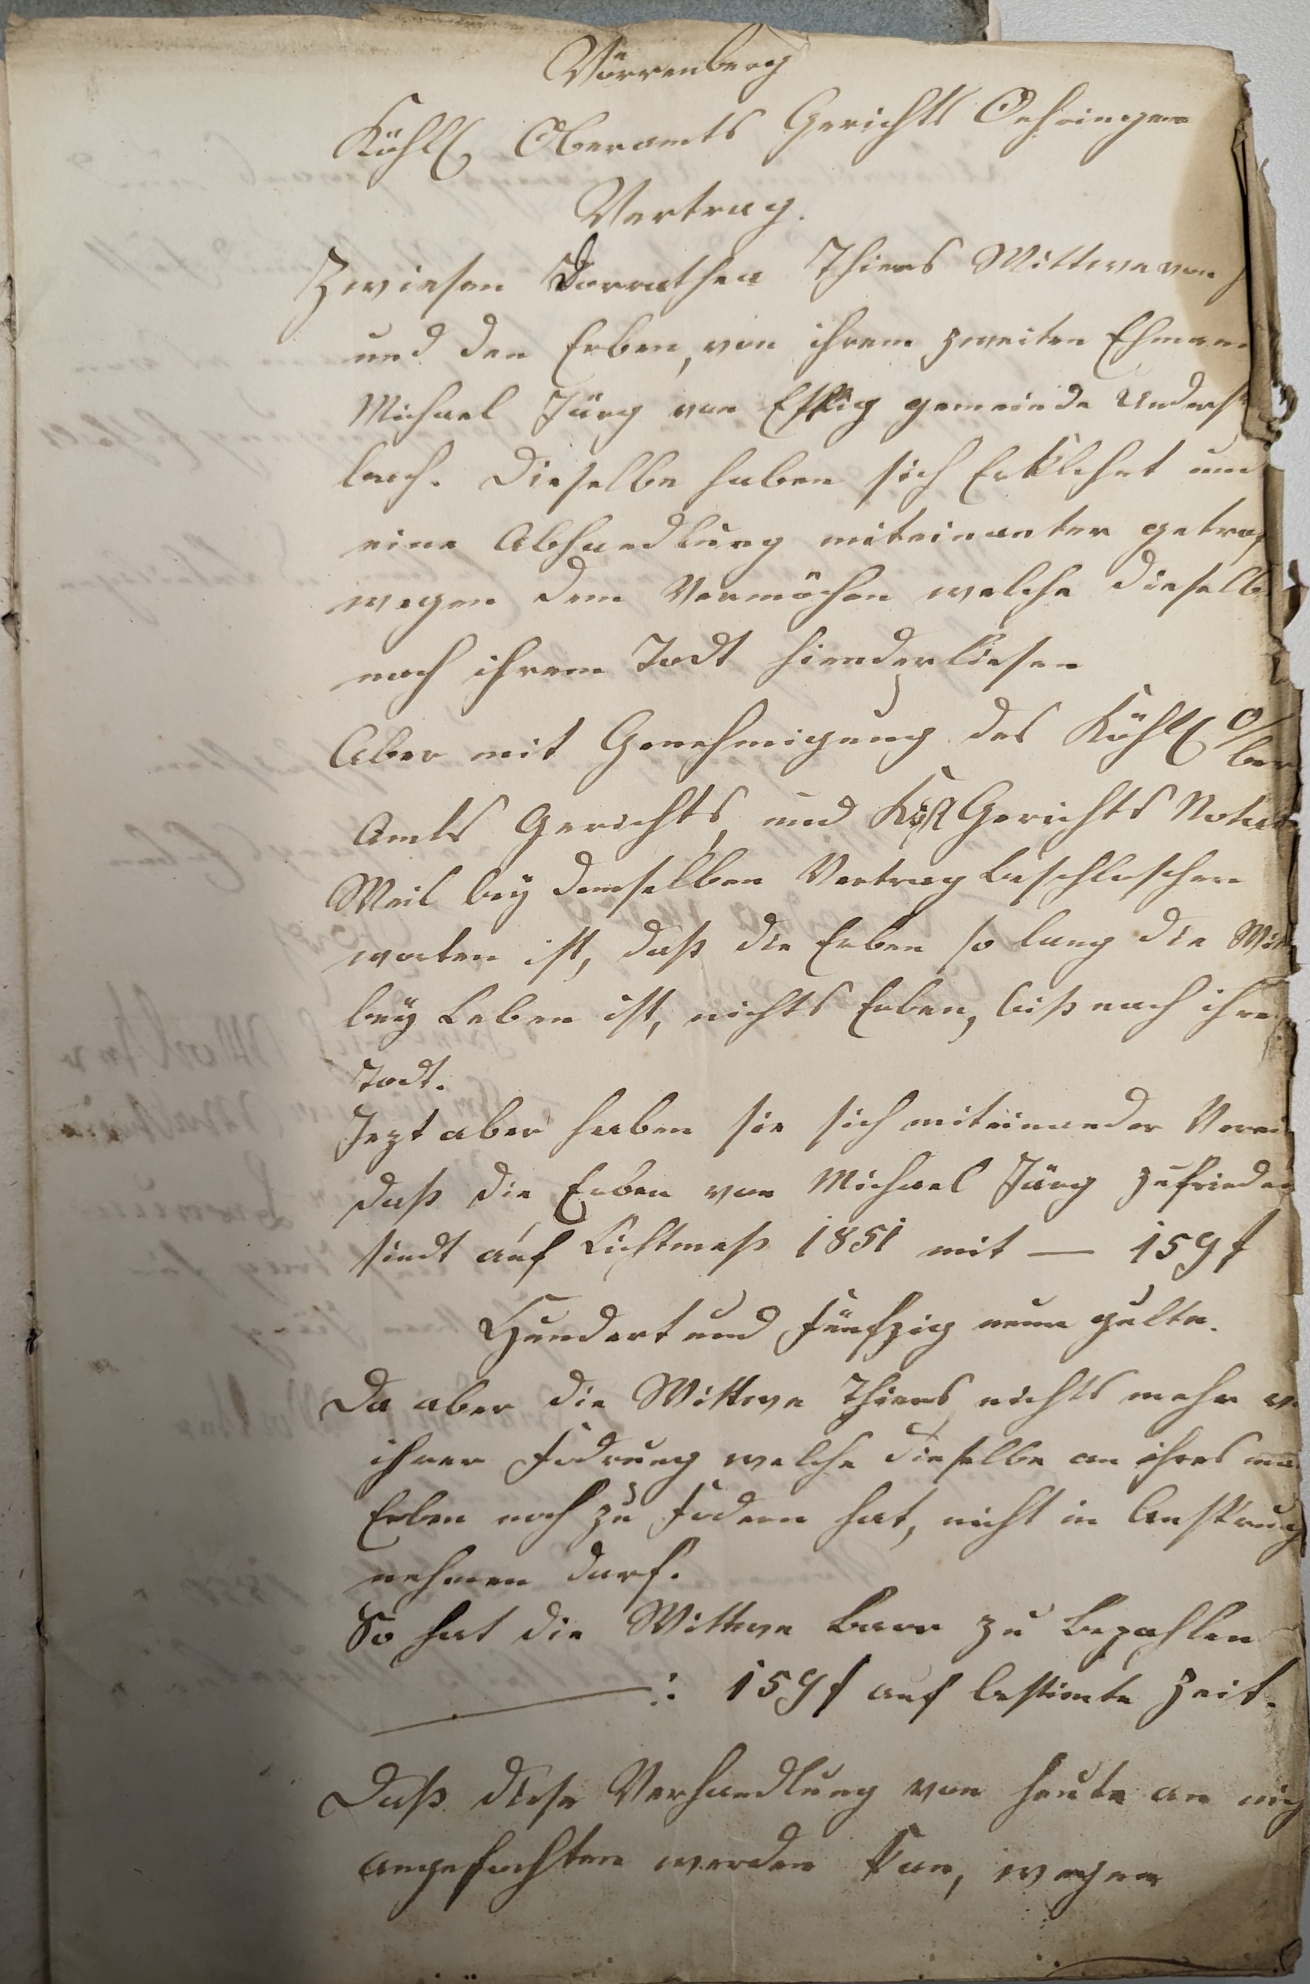 Vörrenberg
Köhl. Oberamts Gerichts Oehringen
Vertrag.
Zwiesen Dorrathea Thiers Wittwe von
und den Erben, von ihrem zweiten Ehman
Michael Jürg von gemeinde Unders
bach. Dieselbe haben sich Erklehrt und
eine Abhandlung miteinanter getrof
wegen dem Vermöchen welche dieselb
nach ihrem Todt hienderliesen
Aber mit Genehmigung des Köhl. Ober
Amts Gerichts, und Gerichts Notar
Weil bey demselben Vertrag beschloschen
worten ist, daß die Erben so lang die Wit
bey Leben ist, nichts Erben, biß nach ihre
Todt.
Jezt aber haben sie sich miteinander Verei
daß die Erben von Michael Jürg zufrieden
sindt auf Lichtmeß 1851 mit — 159 f
Hundert und fünfzig neun gulte.
Da aber die Wittwe Thiers nichts mehr v
ihrer fodrung welche dieselbe an ihres
Erben noch zu fodern hat, nicht in Anspruch
nehmen darf.
So hat die Wittwe baar zu bezahlen
—: 159 f auf bestimte Zeit.
Daß diese Verhandlung von heute an nich
angefochten werden kan, wegen